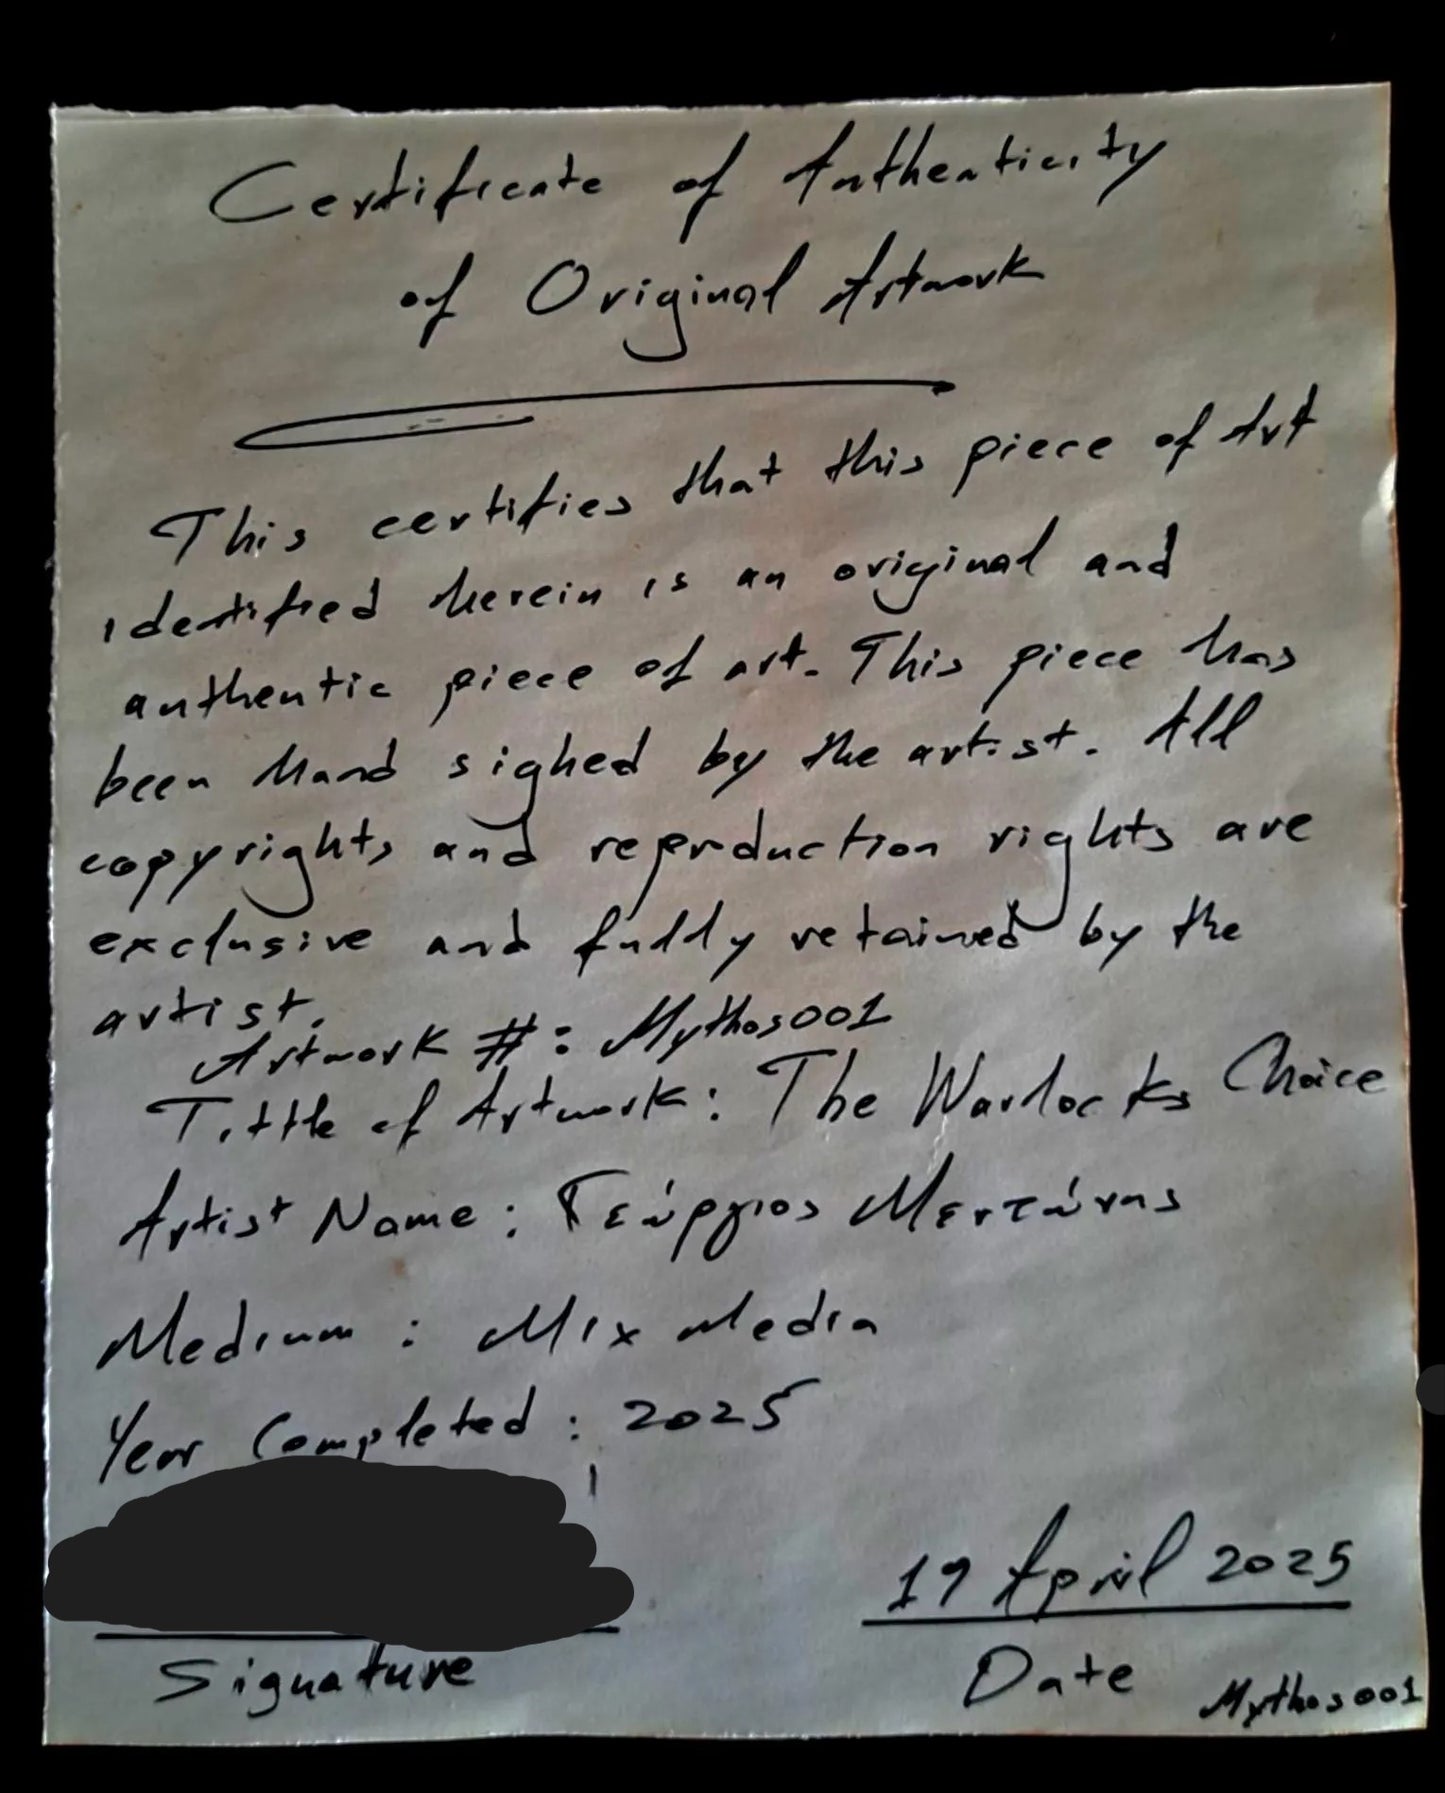 Certificate of Authenticity
of Original Artwork
This certifies that this piece of Art
identified herein is an original and
authentic piece of art. This piece has
been hand sighed by the artist. All
copyrights and reprduction rights are
exclusive and fully retained by the
artist.
Artwork #: Mythos001
Tittle of Artwork: The Warlocks Choice
Artist Name: Γεώργιος
Medium: Mix Media
Year Completed: 2025
19 April 2025
Signature
Date
Mythos001